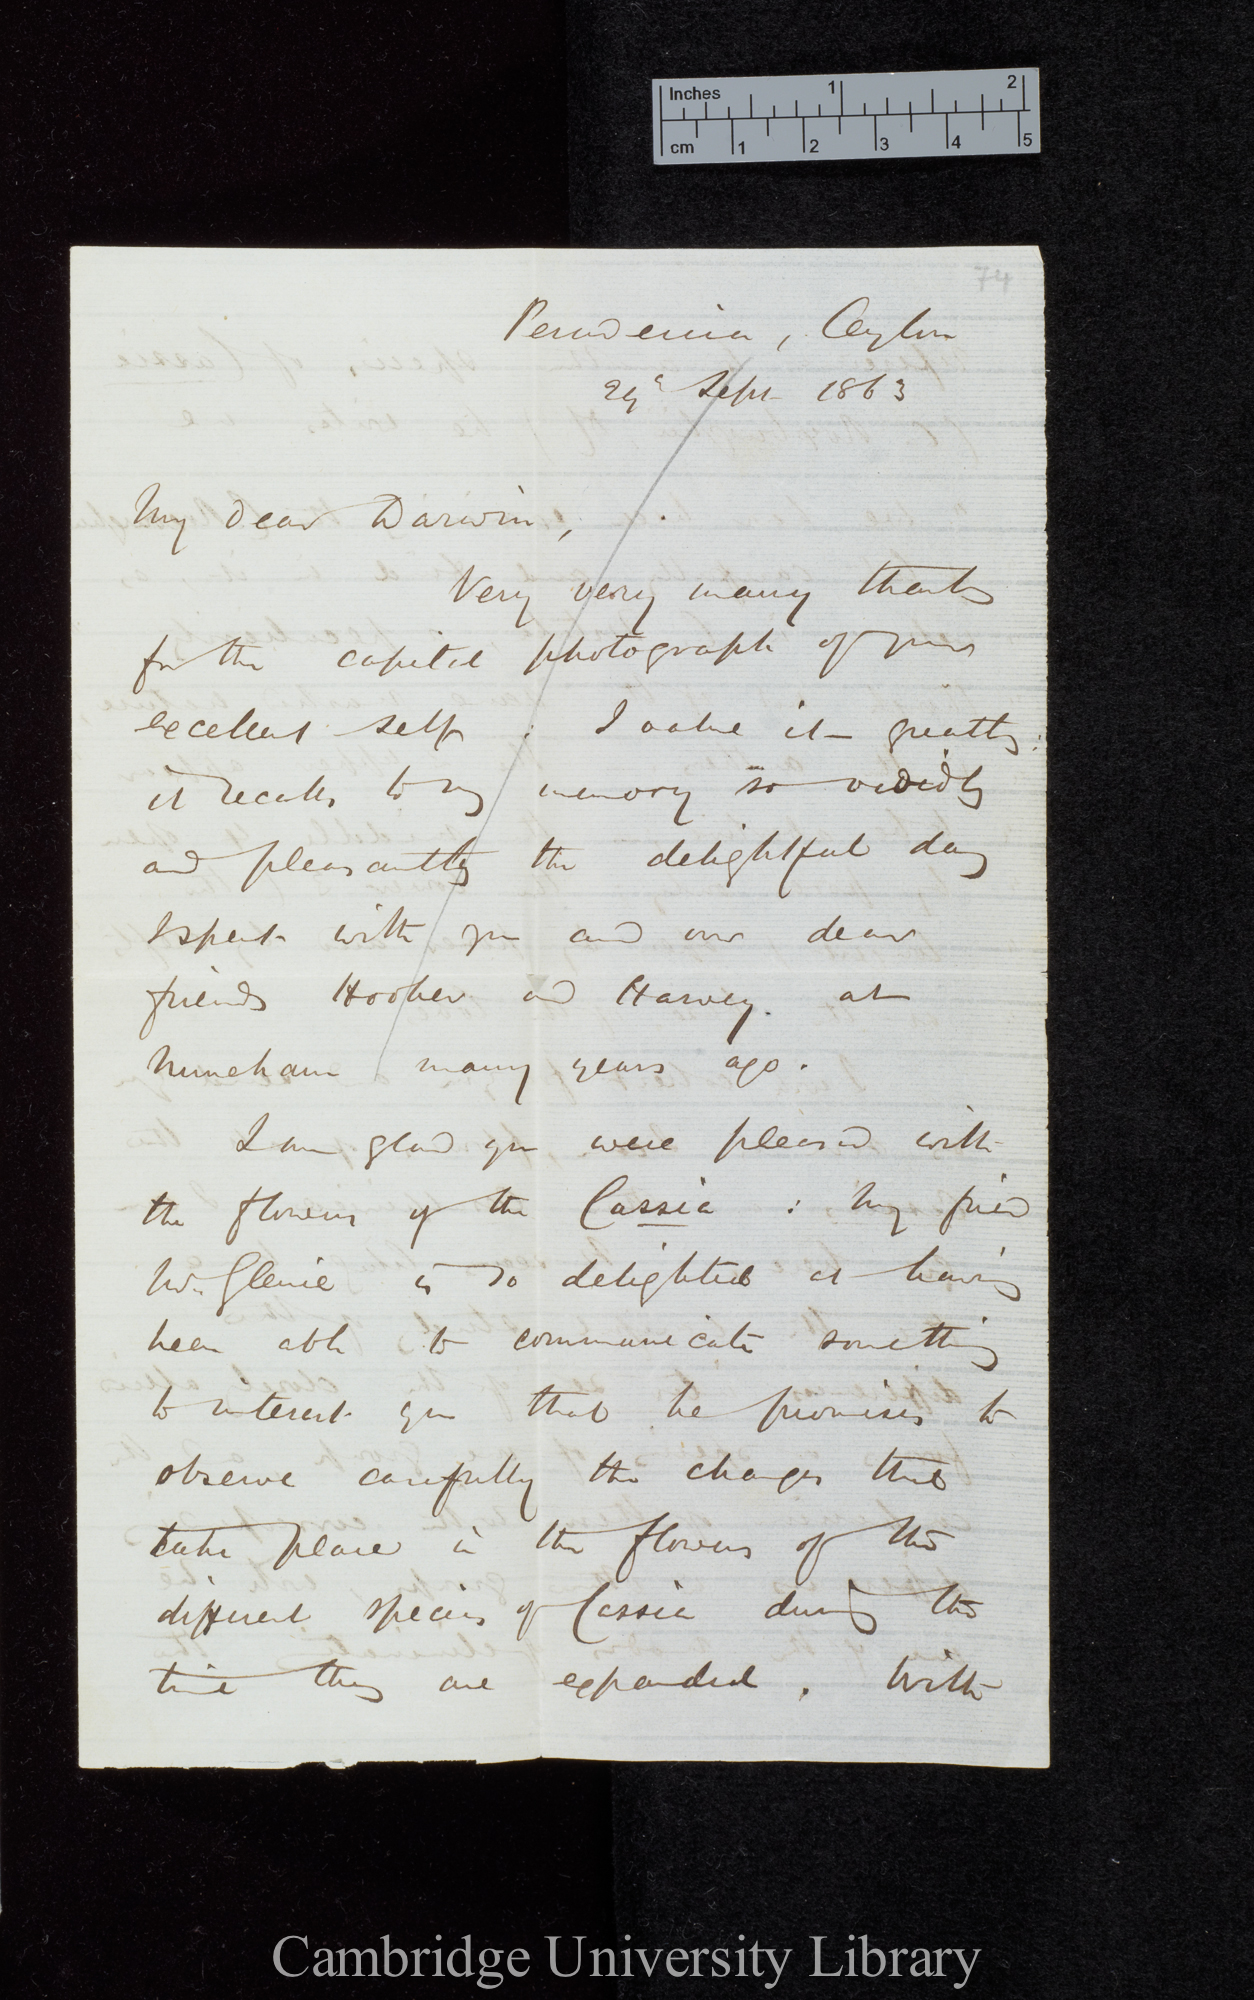 Inches 1 2
cm 1 2 3 4 5
74
Peradenia, Ceylon
29th Sept 1863
My dear Darwin,
Very very many thanks
for the capital photograph of your
excellent self : I value it greatly:
it recalls to my memory so vividly
and pleasantly the delightful day
I spent with you and our dear
friends Hooker and Harvey at
Nuneham many years ago.
I am glad you were pleased with
the flowers of the Cassia : my friend
Mr. Glenie is so delighted at having
been able to communicate something
to interest you that he promises to
observe carefully the changes that
take place in the flowers of the
different species of Cassia during the
time they are expanded. With
Cambridge University Library